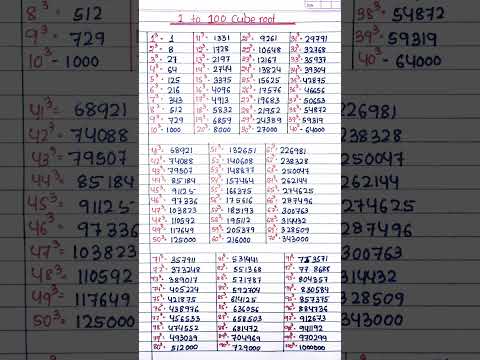 8³- 512
9³- 729
10³- 1000
41³= 68921
42³= 74088
43³= 79507
44³= 85184
45³= 91125
46³= 97336
47³= 103823
48³= 110592
49³= 117649
50³= 125000
1 to 100 Cube root
1³- 1 11³- 1331 21³- 9261 31³- 29791
2³- 8 12³- 1728 22³- 10648 32³- 32768
3³- 27 13³- 2197 23³- 12167 33³- 35937
4³- 64 14³- 2744 24³- 13824 34³- 39304
5³- 125 15³- 3375 25³- 15625 35³- 42875
6³- 216 16³- 4096 26³- 17576 36³- 46656
7³- 343 17³- 4913 27³- 19683 37³- 50653
8³- 512 18³- 5832 28³- 21952 38³- 54872
9³- 729 19³- 6859 29³- 24389 39³- 59319
10³- 1000 20³- 8000 30³- 27000 40³- 64000
41³- 68921 51³- 132651 61³- 226981
42³- 74088 52³- 140608 62³- 238328
43³- 79507 53³- 148877 63³- 250047
44³- 85184 54³- 157464 64³- 262144
45³- 91125 55³- 166375 65³- 274625
46³- 97336 56³- 175616 66³- 287496
47³- 103823 57³- 185193 67³- 300763
48³- 110592 58³- 195112 68³- 314432
49³- 117649 59³- 205379 69³- 328509
50³- 125000 60³- 216000 70³- 343000
71³- 357911 81³- 531441 91³- 753571
72³- 373248 82³- 551368 92³- 77 8685
73³- 389017 83³- 571787 93³- 804357
74³- 405224 84³- 592704 94³- 830584
75³- 421875 85³- 614125 95³- 857375
76³- 438976 86³- 636056 96³- 884736
77³- 456533 87³- 658503 97³- 912673
78³- 474552 88³- 681472 98³- 941192
79³- 493039 89³- 704969 99³- 970299
80³- 512000 90³- 729000 100³- 1000000
38³- 54872
39³- 59319
40³- 64000
226981
238328
250047
262144
274625
287496
300763
314432
328509
343000